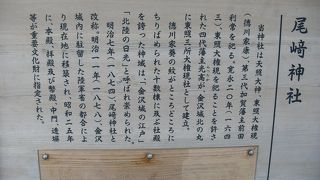 尾﨑神社
当神社は天照大神、東照大権現
(徳川家康)、第三代加賀藩主前田
利常を祀る。寛永二〇年(一六四
三)、東照大権現を祀ることを許さ
れた四代藩主光高が、金沢城北の丸
に東照三所大権現社として建立。
徳川家康の紋がところどころに
ちりばめられた十数棟に及ぶ社殿
を誇った神域は、「金沢城の江戸」
「北陸の日光」と呼ばれ崇められた。
明治七年(一八七四)、尾﨑神社と
改称。明治一一年(一八七八)金沢
城内に駐留した陸軍省の都合によ
り現在地に移築され、昭和二五年
に、本殿、拝殿及び幣殿、中門、透塀
等が重要文化財に指定された。